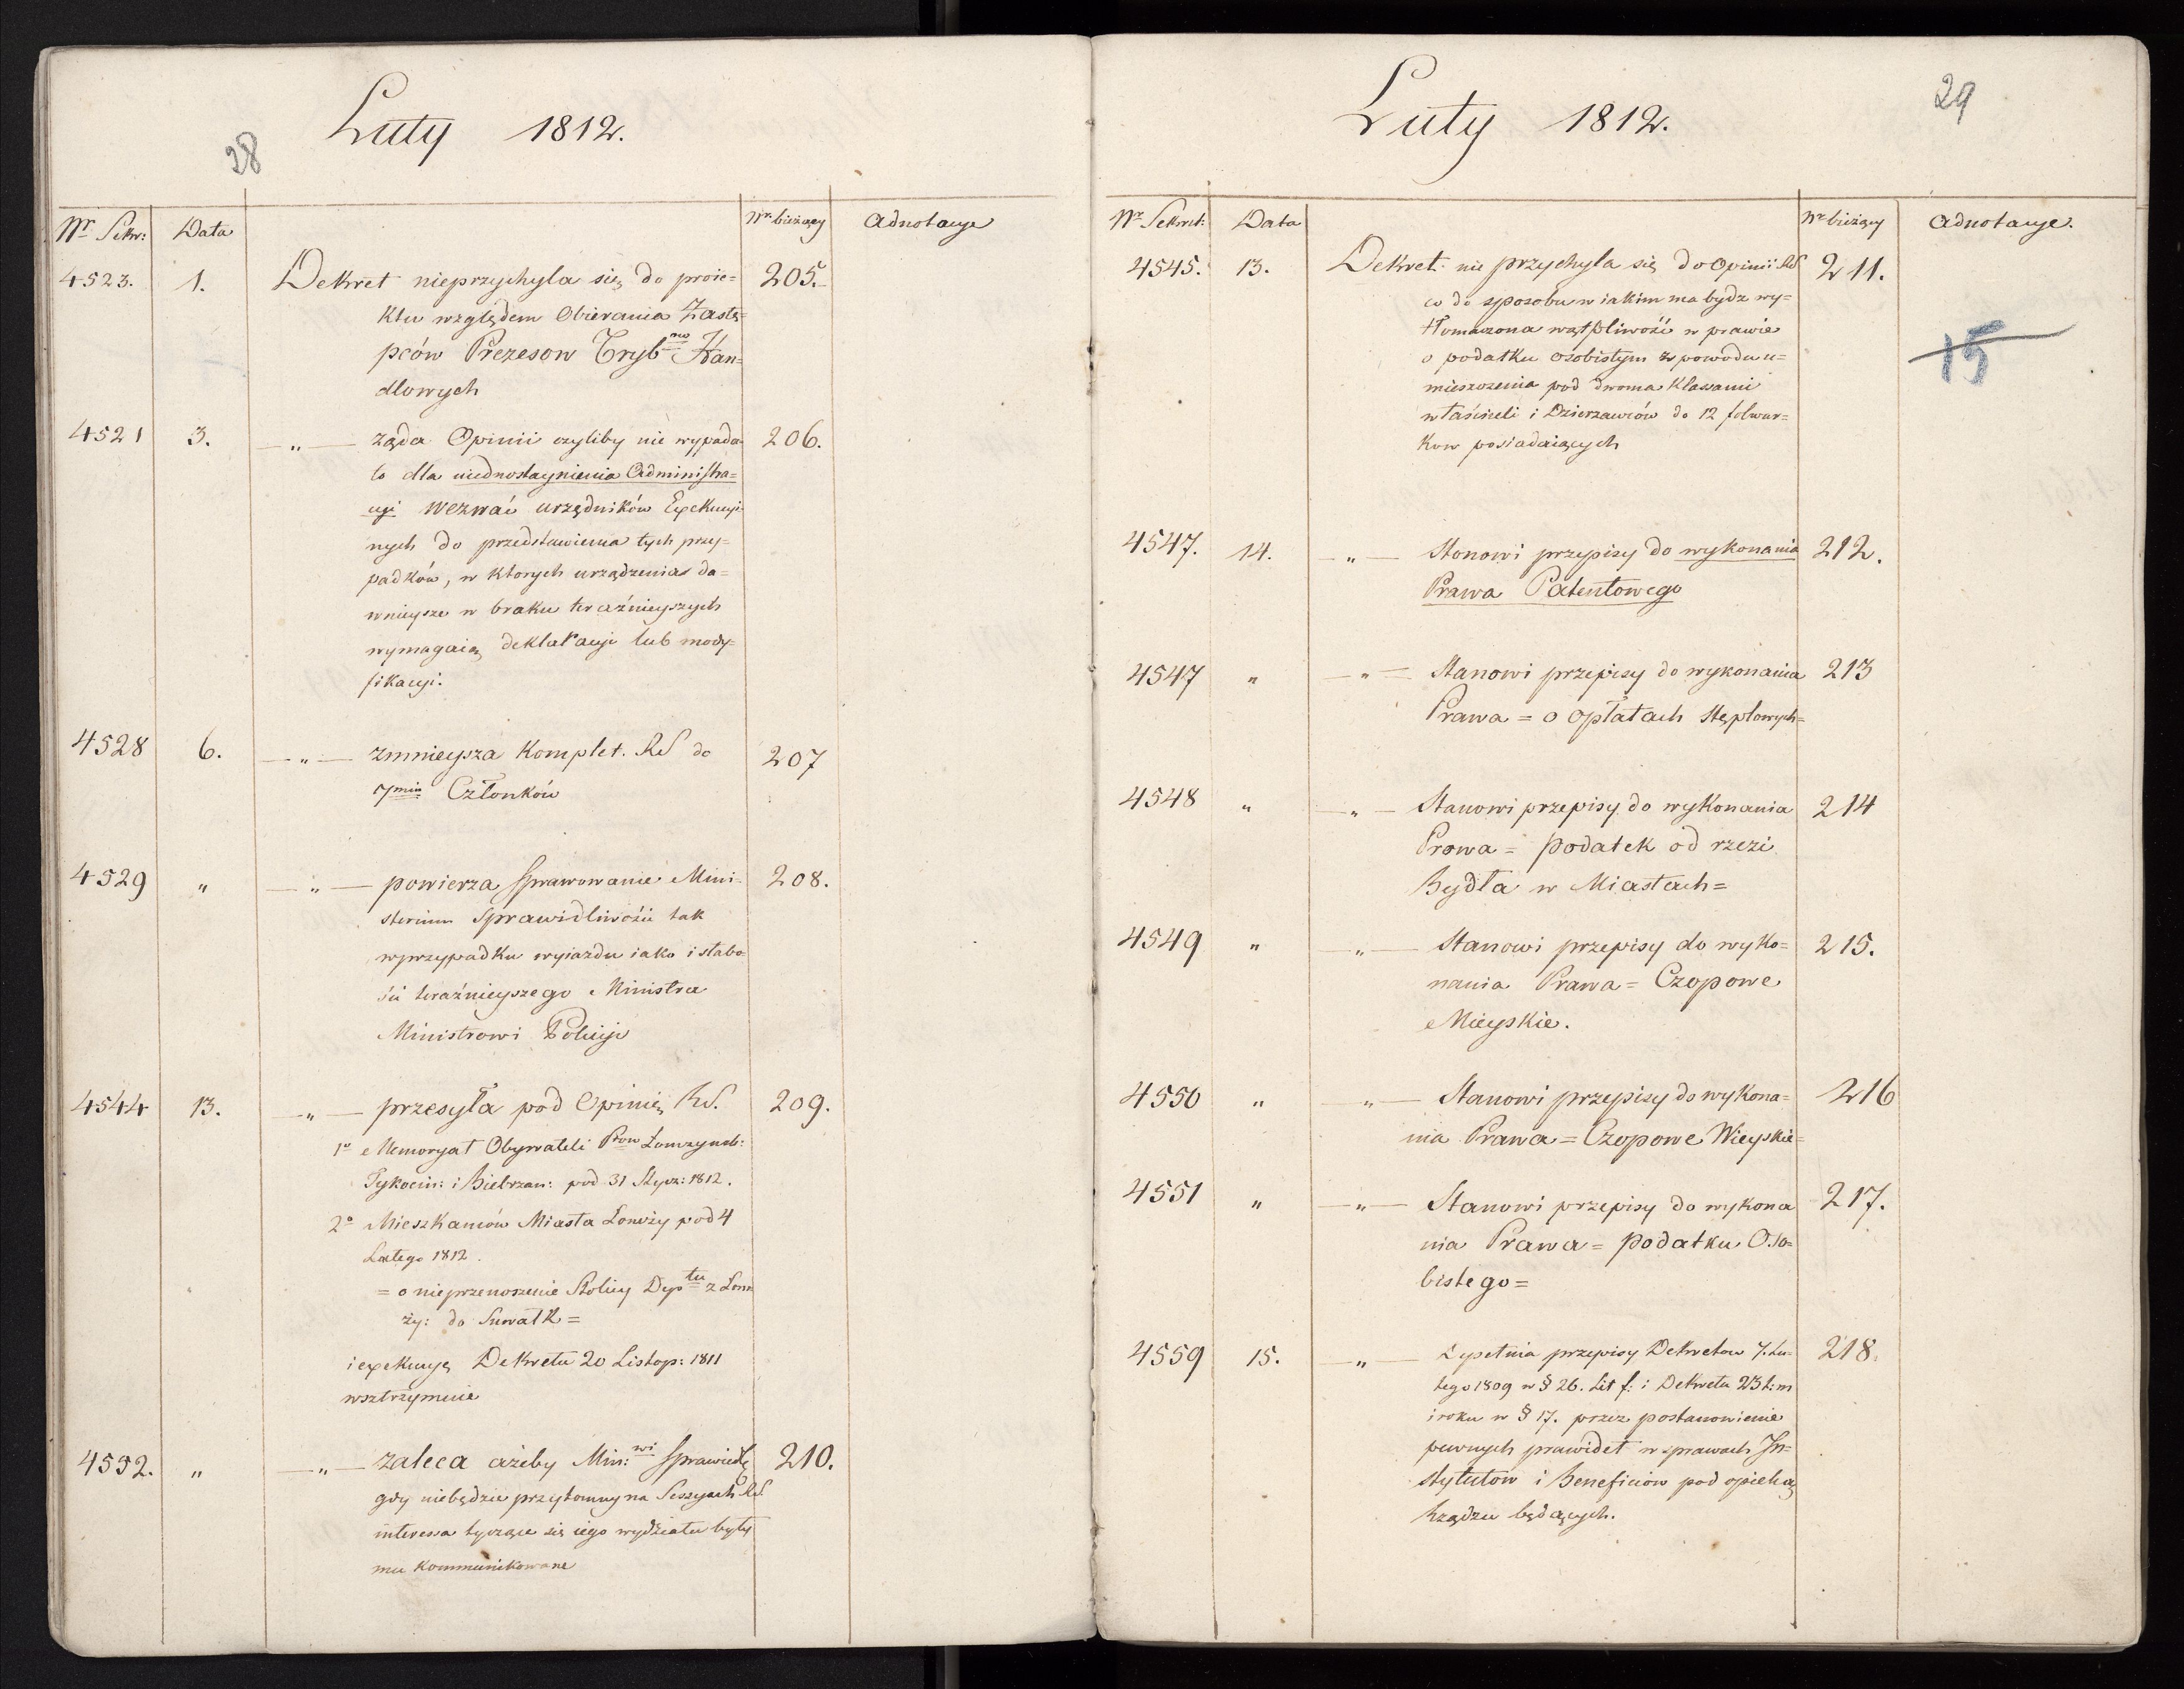 28
Luty 1812.
Nr Sekr: Data Nr bieżący Adnotacye
4523. 1. Dekret nieprzychyla się do proie=
ktu względem Obierania Zastę=
pców Prezesow Trybnow Han=
dlowych 205.
4521 3. —„— żąda Opinii czyliby nie wypada=
ło dla uiednostaynienia Administra=
cyi wezwać urzędników Expekucyi=
nych do przedstawienia tych przy=
padków, w ktorych urządzenia da=
wnieysze w braku teraźnieyszych
wymagaią deklaracyi lub mody=
fikacyi. 206.
4528 6. —„— zmnieysza Komplet. RS do
7min Członków 207
4529 „ —„— powierza Sprawowanie Mini=
sterium Sprawidliwości tak
wprzypadku wyiazdu iako i słabo=
ści teraźnieyszego Ministra
Ministrowi Policyi 208.
4544 13. —„— przesyła pod Opinię RS. 209.
1o Memoryał Obywateli Pow Łomzynsk:
Tykocin: i Biebrzan: pod 31 Stycz: 1812.
2o Mieszkanców Miasta Lomży pod 4
Lutego 1812.
= o nieprzenoszenie Stolicy Deptu z Łom
ży: do Suwałk =
i expekucyę Dekretu 20 Listop: 1811
wsztrzymnie
4592. „ —„— zaleca ażeby Min:wi Sprawiedl
gdy niebędzie przytomny na Sessyach RS.
interessa tyczące się iego wydziału były
mu kommunikowane 210.
29
Luty 1812.
Nr Sekret: Data Nr bieżący Adnotacye.
4545. 13. Dekret nie przychyla się do Opinii RS
co do sposobu w iakim ma bydz wy=
tłomaczona wątpliwość w prawie
o podatku osobistym z powodu u=
mieszczenia pod dwoma Klassami
właścicieli i Dzierzawców do 12 folwar=
kow posiadaiących 211.
15
4547. 14. —„— Stonowi przepisy do wykonania
Prawa Patentowego 212.
4547 „ —„— Stanowi przepisy do wykonania
Prawa = o opłatach stęplowych= 213
4548 „ —„— Stanowi przepisy do wykonania
Prawa = podatek od rzezi
Bydła w Miastach= 214
4549 „ —„— Stanowi przepisy do wyko=
nania Prawa = Czopowe
Mieyskie. 215.
4550 „ —„— Stanowi przepisy do wykona=
nia Prawa = Czopowe Wieyskie= 216
4551 „ —„— Stanowi przepisy do wykona
nia Prawa = podatku Oso=
bistego= 217.
4559 15. —„— Zupełnia przepisy Dekretow 7. Lu=
tego 1809 w § 26. Lit f: i Dekretu 23 t:m
i roku w § 17. przez postanowienie
pewnych prawideł w sprawach In=
stytutow i Beneficiow pod opieką
Rządzu będących. 218.